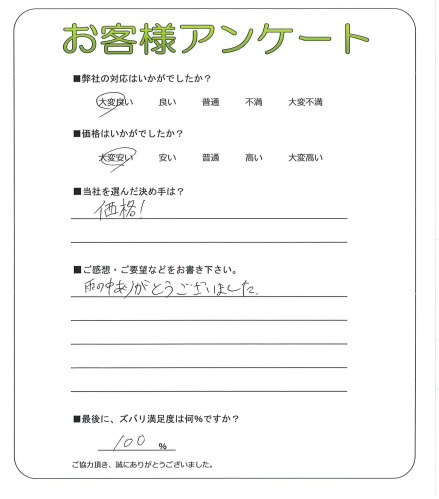 お客様アンケート
■弊社の対応はいかがでしたか？
大変良い 良い 普通 不満 大変不満
■価格はいかがでしたか？
大変安い 安い 普通 高い 大変高い
■当社を選んだ決め手は？
価格!
■ご感想・ご要望などをお書き下さい。
雨の中ありがとうございました.
■最後に、ズバリ満足度は何％ですか？
100 ％
ご協力頂き、誠にありがとうございました。